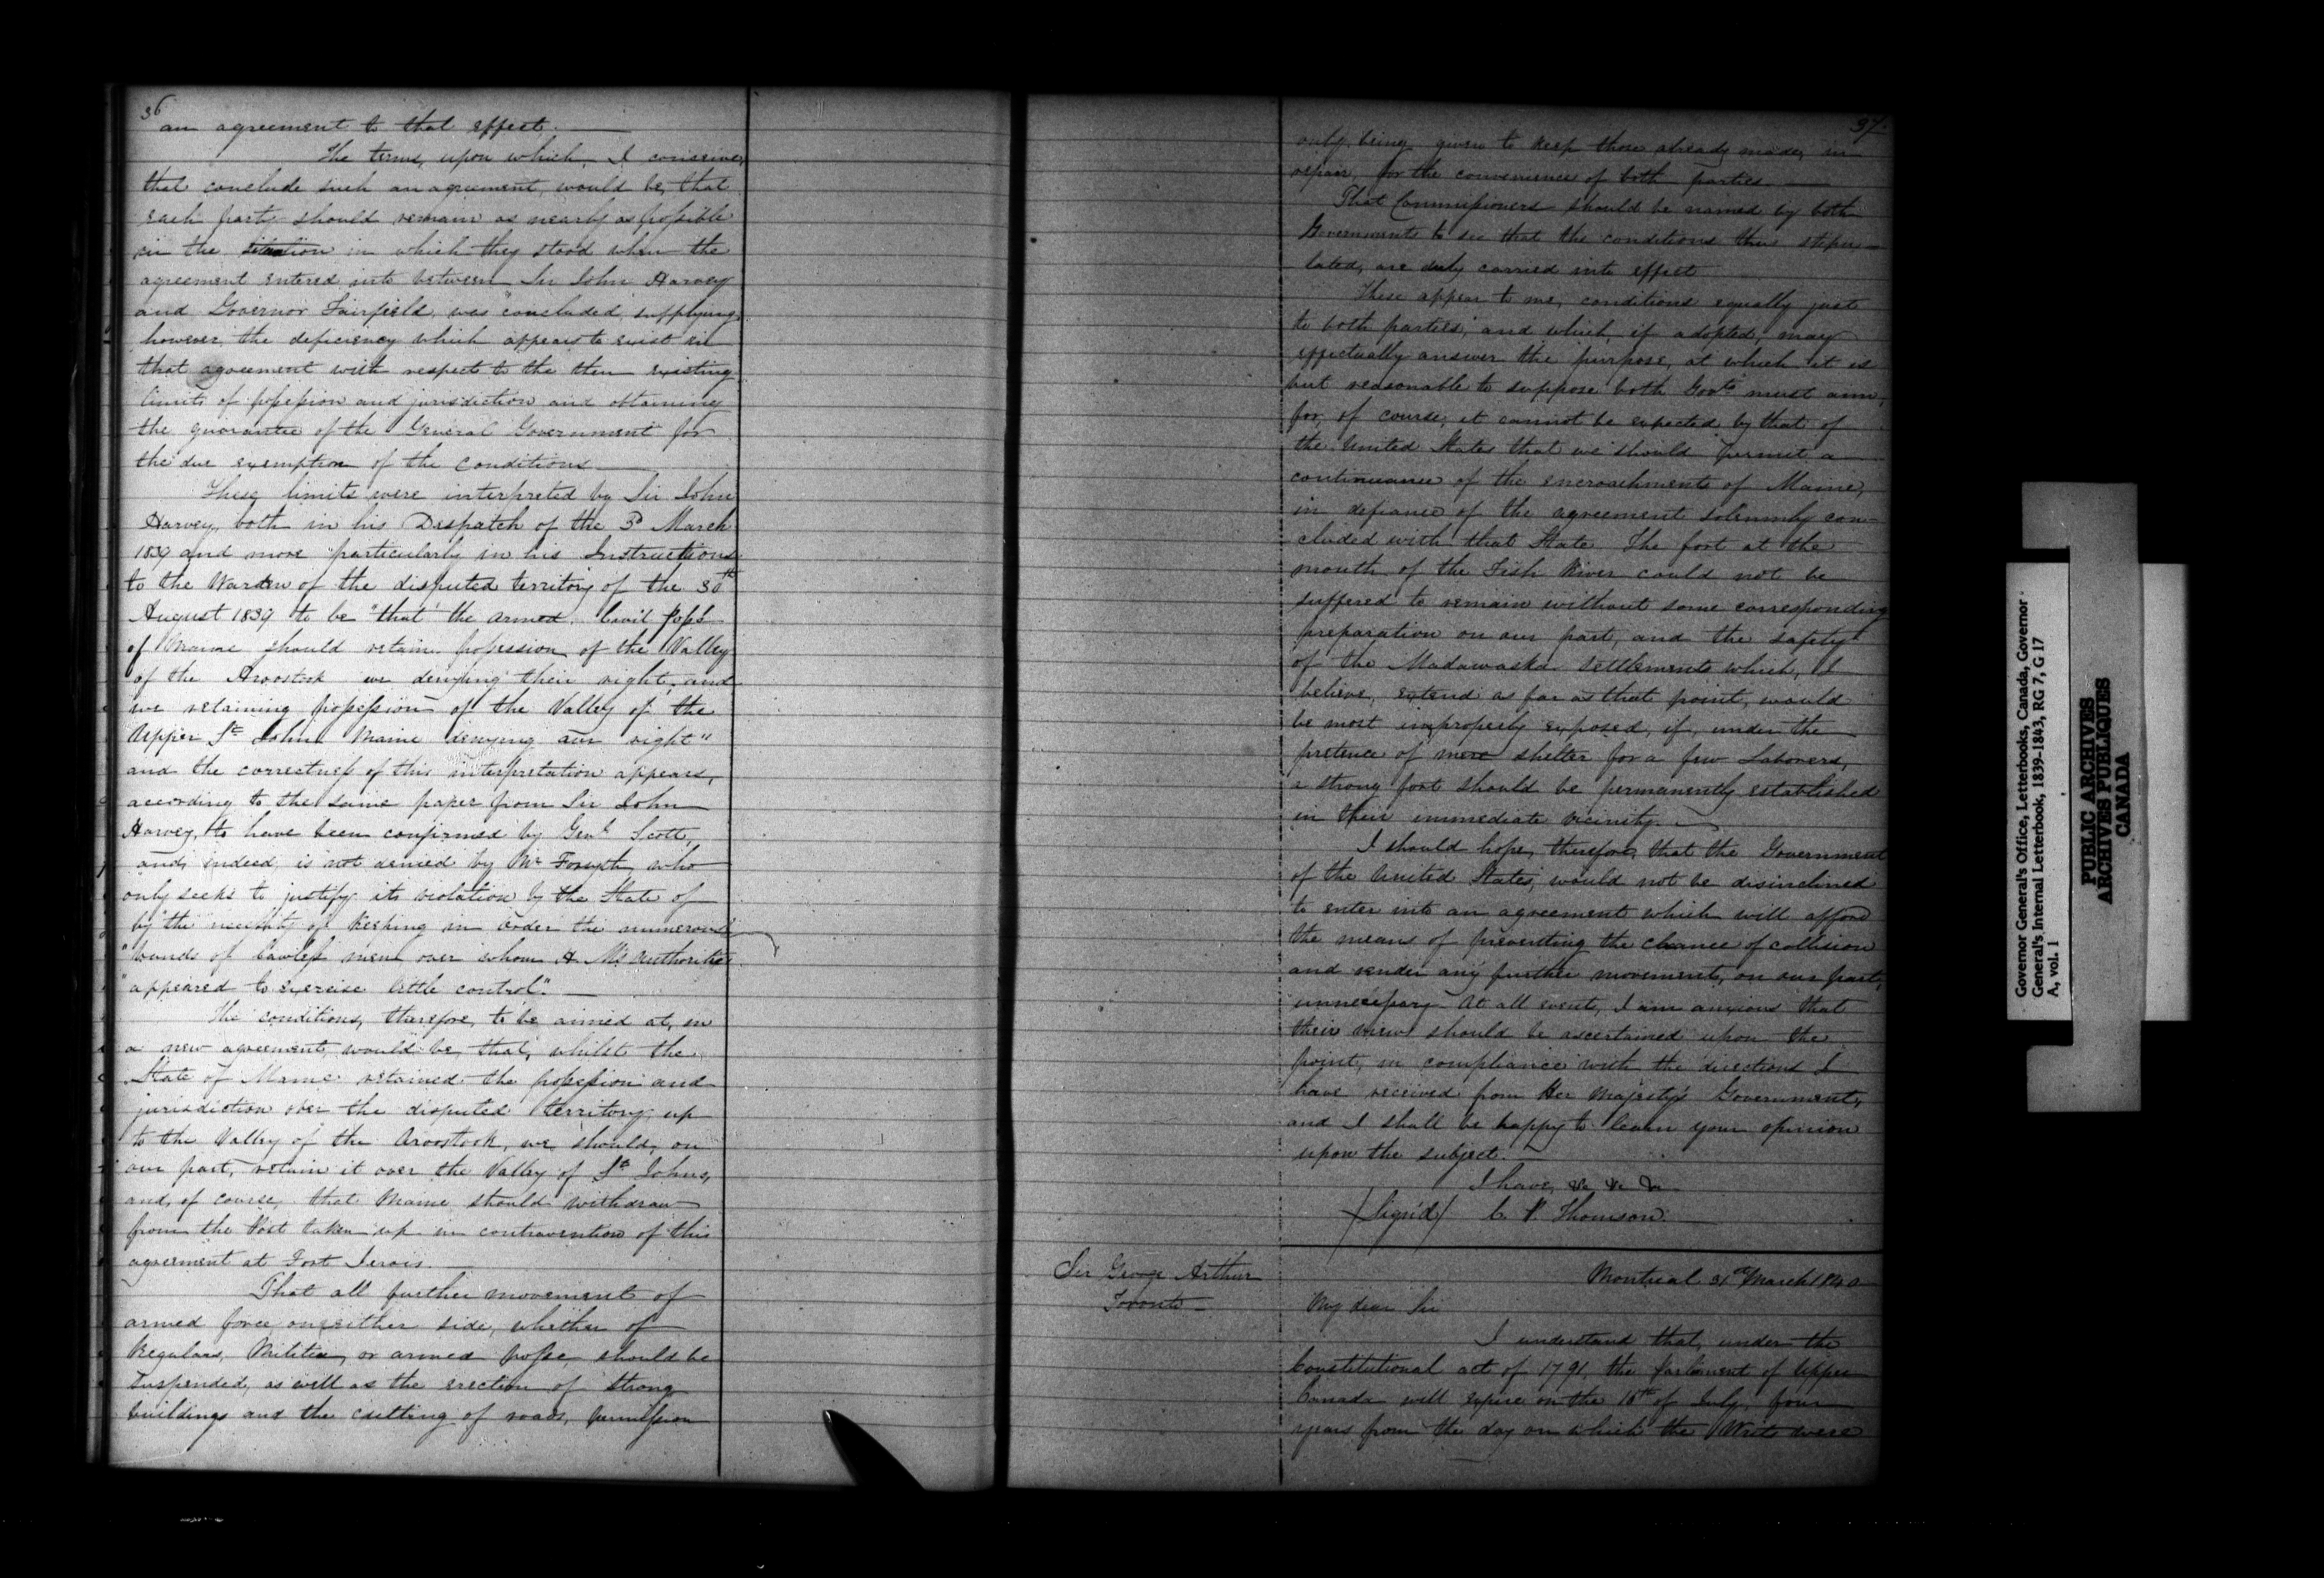 36
an agreement to that effect. —
The terms, upon which, I conceive,
that conclude such an agreement, would be, that
each party should remain as nearly as possible
in the situation in which they stood when the
agreement entered into between Sir John Harvey
and Governor Fairfield, was concluded, supplying
however the deficiency which appears to exist in
that agreement with respect to the then existing
limits of possession and jurisdiction and obtaining
the guarantee of the General Government for
the due exemption of the conditions —
These limits were interpreted by Sir John
Harvey, both in his Despatch of the 3d March
1839 and more particularly in his Instructions
to the Warden of the disputed territory of the 30th
August 1839 to be "that the armed Civil
of Maine should retain possession of the Valley
of the Aroostook we denying their right, and
we retaining possession of the Valley of the
Upper St John Maine denying our right"
and the correctness of this interpretation appears,
according to the same paper from Sir John
Harvey, to have been confirmed by Genl Scott,
and, indeed, is not denied by Mr Forsyth, who
only seeks to justify its violation by the State of
by "the necessity of keeping in order the numerous
"bands of lawless men over whom H. M's authorities
"appeared to exercise little control". —
The conditions, therefore, to be aimed at, in
a new agreement, would be, that, whilst the
State of Maine retained the possession and
jurisdiction over the disputed territory, up
to the Valley of the Aroostook, we should, on
our part, retain it over the Valley of St Johns,
and, of course, that Maine should withdraw
from the Post taken up in contravention of this
agreement at Fort Jervis.
That all further movement of
armed force on either side, whether of
Regulars, Militia, or armed posse, should be
suspended, as well as the erection of strong
buildings and the cutting of roads, permission
37.
only being given to keep those already made, in
repair, for the convenience of both parties. —
That Commissioners should be named by both
Governments to see that the conditions thus stipu-
lated, are duly carried into effect
These appear to me, conditions equally just
to both parties, and which, if adopted, may
effectually answer the purpose, at which it is
but reasonable to suppose both Govts must aim,
for, of course, it cannot be expected by that of
the United States that we should permit a
continuance of the encroachments of Maine,
in defiance of the agreement solemnly con-
cluded with that State. The fort at the
mouth of the Fish River could not be
suffered to remain without some corresponding
preparation on our part, and the safety
of the Madawaska settlements which, I
believe, extend as far as that point, would
be most improperly exposed, if, under the
pretence of mere shelter for a few Laborers,
a strong fort should be permanently established
in their immediate vicinity. —
I should hope, therefore, that the Government
of the United States, would not be disinclined
to enter into an agreement which will afford
the means of preventing the chance of collision
and render any further movements, on our part,
unnecessary. At all events, I am anxious that
their views should be ascertained upon the
point, in compliance with the directions I
have received from Her Majesty's Government,
and I shall be happy to learn your opinion
upon the subject. —
I have, &c &c &c
/Sign'd/ C. P. Thomson. —
Sir George Arthur
Toronto —
Montreal 31st March 1840
My dear Sir
I understand that, under the
Constitutional act of 1791, the Parliament of Upper
Canada will expire on the 16th of July, four
years from the day on which the Writs were
Governor General's Office, Letterbooks, Canada, Governor
General's Internal Letterbook, 1839-1843, RG 7, G 17
A, vol. 1
PUBLIC ARCHIVES
ARCHIVES PUBLIQUES
CANADA